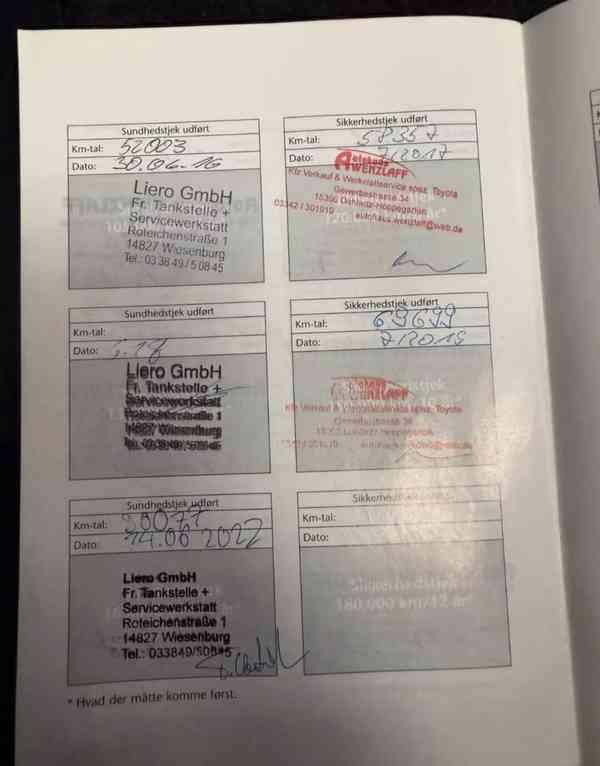 Sundhedstjek udført
Km-tal: 52003
Dato: 30.06.16
Liero GmbH
Fr. Tankstelle +
Servicewerkstatt
Roteichenstraße 1
14827 Wiesenburg
Tel.: 03 38 49 / 5 08 45
Sikkerhedstjek udført
Km-tal: 58357
Dato: 7/2017
WENZLAFF
Kfz Verkauf & Werkstattservice spez. Toyota
Gewerbestrasse 34
15366 Dahlwitz-Hoppegarten
03342 / 301910 autohaus.wenzlaff@web.de
Sundhedstjek udført
Km-tal:
Dato:
Liero GmbH
Fr. Tankstelle +
Servicewerkstatt
Roteichenstraße 1
14827 Wiesenburg
Sikkerhedstjek udført
Km-tal: 69699
Dato:
WENZLAFF
Kfz Verkauf & Werkstattservice spez. Toyota
Sundhedstjek udført
Km-tal:
Dato: 14.06 2022
Liero GmbH
Fr. Tankstelle +
Servicewerkstatt
Roteichenstraße 1
14827 Wiesenburg
Tel.: 033849/50845
Sikkerhedstjek udført
Km-tal:
Dato:
* Hvad der måtte komme først.